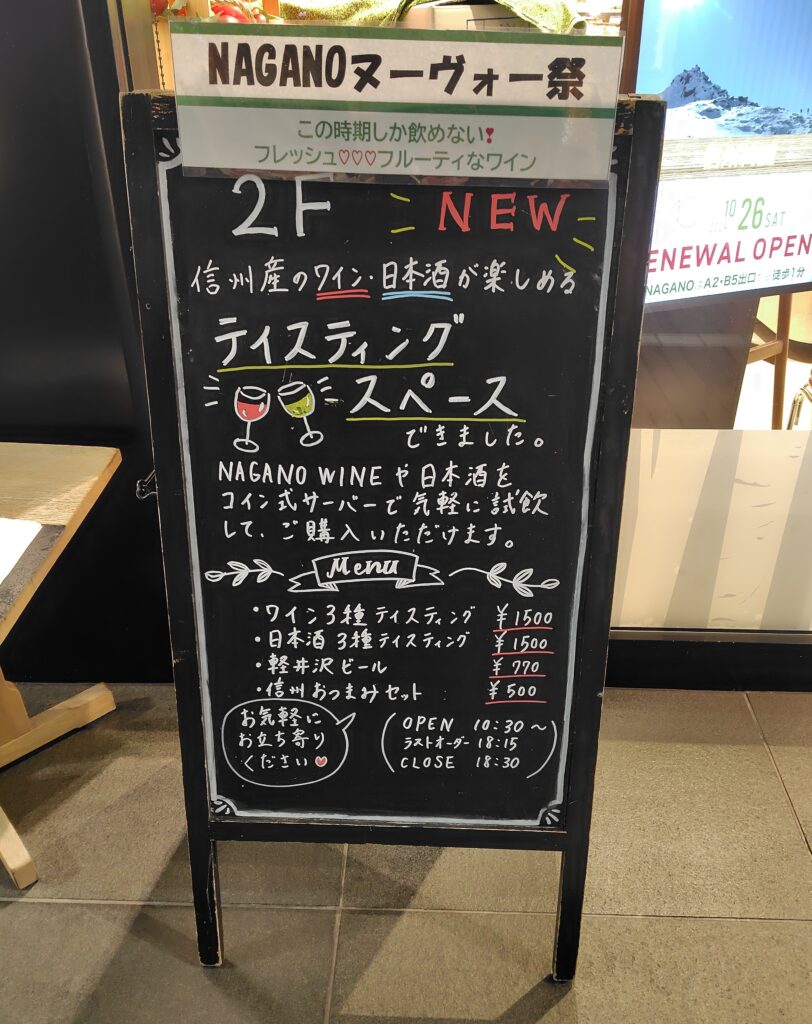 NAGANOヌーヴォー祭
この時期しか飲めない❣
フレッシュ♡♡♡フルーティなワイン
2F NEW
信州産のワイン・日本酒が楽しめる
ティスティング
スペース
できました。
NAGANO WINEや日本酒を
コイン式サーバーで気軽に試飲
して、ご購入いただけます。
Menu
・ワイン3種ティスティング ¥1500
・日本酒3種ティスティング ¥1500
・軽井沢ビール ¥770
・信州おつまみセット ¥500
お気軽に
お立ち寄り
ください♥
OPEN 10:30〜
ラストオーダー 18:15
CLOSE 18:30
2024 10 26 SAT
ENEWAL OPEN
NAGANO A2・B5出口 徒歩1分